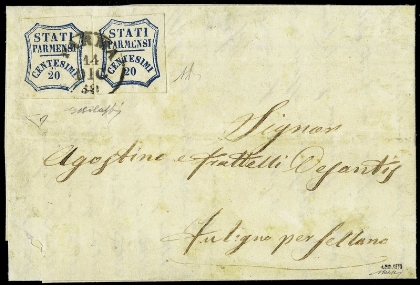 STATI STATI
PARMENSI PARMENSI
CENTESIMI CENTESIMI
20 20
14
DIC
Signor
Agostino e fratelli Desantis
Fuligno per Sellano